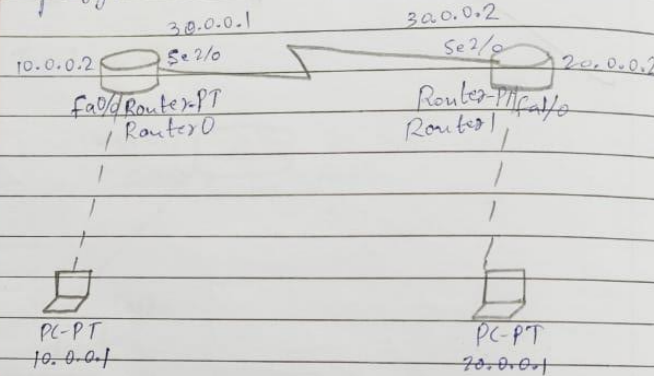 30.0.0.1
30.0.0.2
10.0.0.2
Se2/0
Se2/0
20.0.0.2
fa0/0
Router-PT
Router0
Router-PT
fa1/0
Router1
PC-PT
10.0.0.1
PC-PT
20.0.0.1